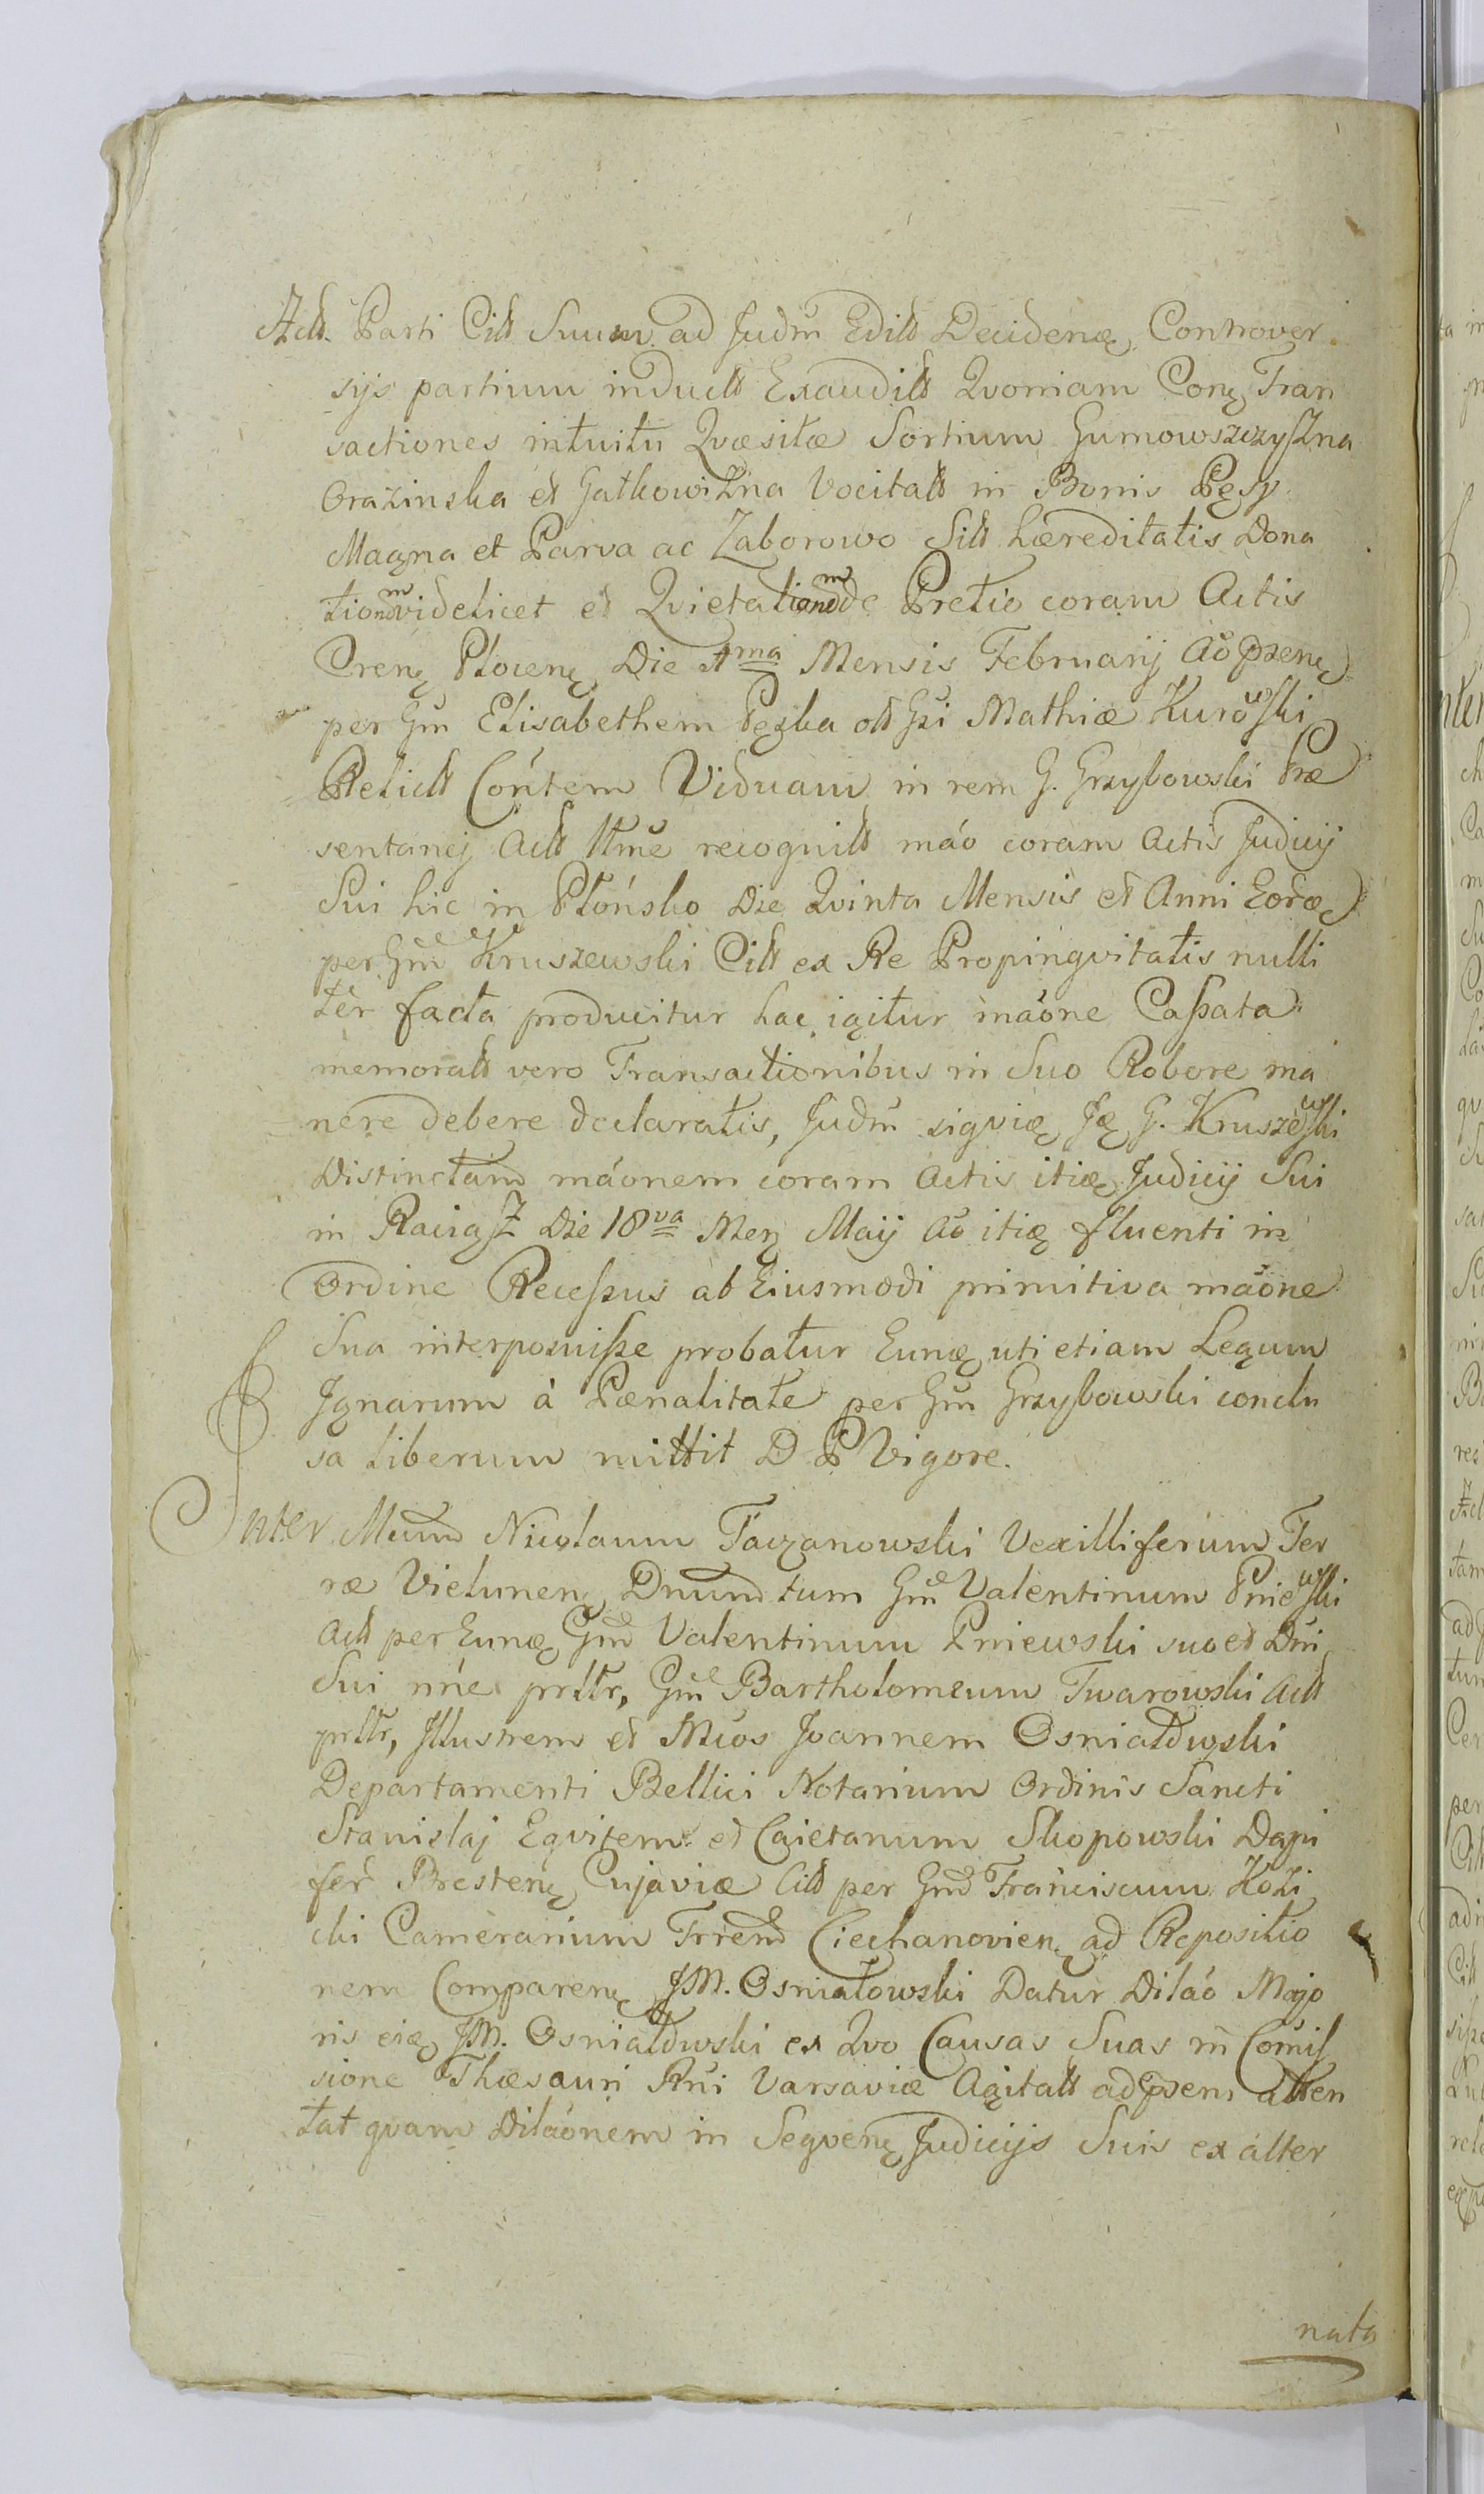 Actt. Parti Citt Suum ad Judm Editt Decidenę Controver
sijs partium inductt Exauditt Qvoniam Conę Tran
sactiones intuitu Qvæsitæ Sortium Gumowszczyszna
Orazinska et Gatkowizna Vocitatt in Bonis Pęsy
Magna et Parva ac Zaborowo Sitt hæreditatis Dona
tionem videlicet et Qvietationem de Pretio coram Actis
Crenę Płocenę Die 1ma Mensis Februarij Ao præsenę
per Gm Elisabethem Pęska ott Gsi Mathiæ Kurowski
Relictt Contem Viduam in rem G. Grzybowski Præ
sentanej Actt ltme recognitt mao coram Actis Judicij
Sui hic in Płońsko Die Qvinta Mensis et Anni Eorę
per Gm Kruszewski Citt ex Re Propinqvitatis nulli
ter facta producitur hac igitur maone Cassata
memoratt vero Transactionibus in Suo Robore ma
nere debere declaratis, Judm siqvię Ję G. Kruszewski
Distinctam maonem coram Actis itię Judicij Sui
in Raciąż Die 18va Men Maij Ao itię fluenti in
Ordine Recessus ab Eiusmodi primitiva maone
Sua interposuisse probatur Eunę uti etiam Legum
Ignarum à Pænalitate per Gm Grzybowski conclu
sa liberum mittit D P Vigore.
Inter Mcum Nicolaum Taczanowski Vexilliferum Ter
ræ Vielunenę Dnum tum Gm Valentinum Pniewski
Actt per Eunę Gm Valentinum Pniewski suo et Dni
Sui nne prttr, Gm Bartholomeum Twarowski Actt
prttr, Illustrem et Mcos Joannem Osniałowski
Departamenti Bellici Notarium Ordinis Sancti
Stanislaj Eqvitem et Caietanum Skopowski Dapi
fer Brestenę Cujaviæ Citt per Gm Franciscum Kozi
cki Camerarium Trrem Ciechanovienę ad Repositio
nem Comparenę JM. Osniałowski Datur Dilao Majo
ris eię JM. Osniałowski ex Qvo Causas Suas in Comis
sione Thæsauri Rni Varsaviæ Agitatt ad præsens atten
tat qvam Dilaonem in Seqvenę Judicijs Suis ex alter
nata